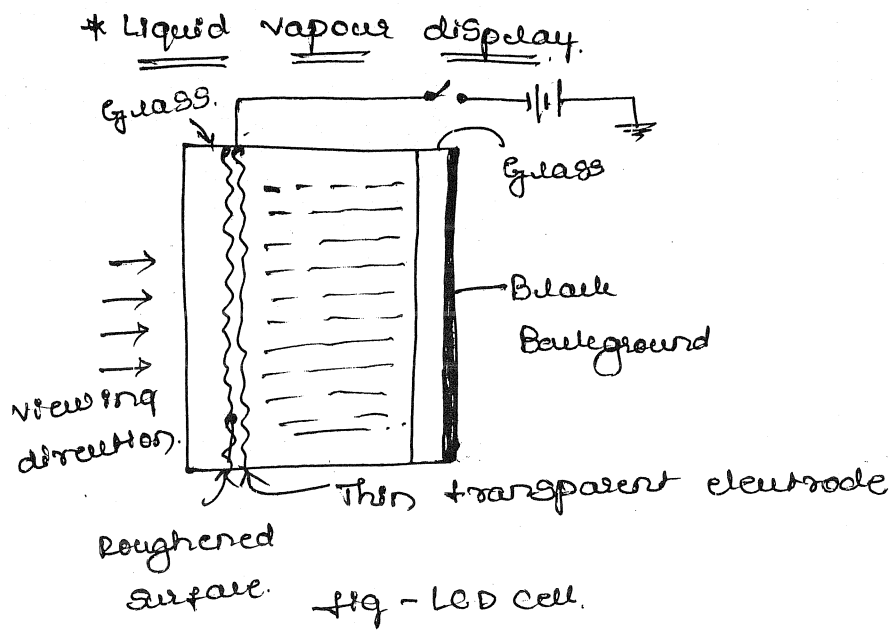 * Liquid vapour display.
Glass.
Glass
Black
Background
viewing
direction.
Thin transparent electrode
Roughened
surface.
fig - LCD cell.